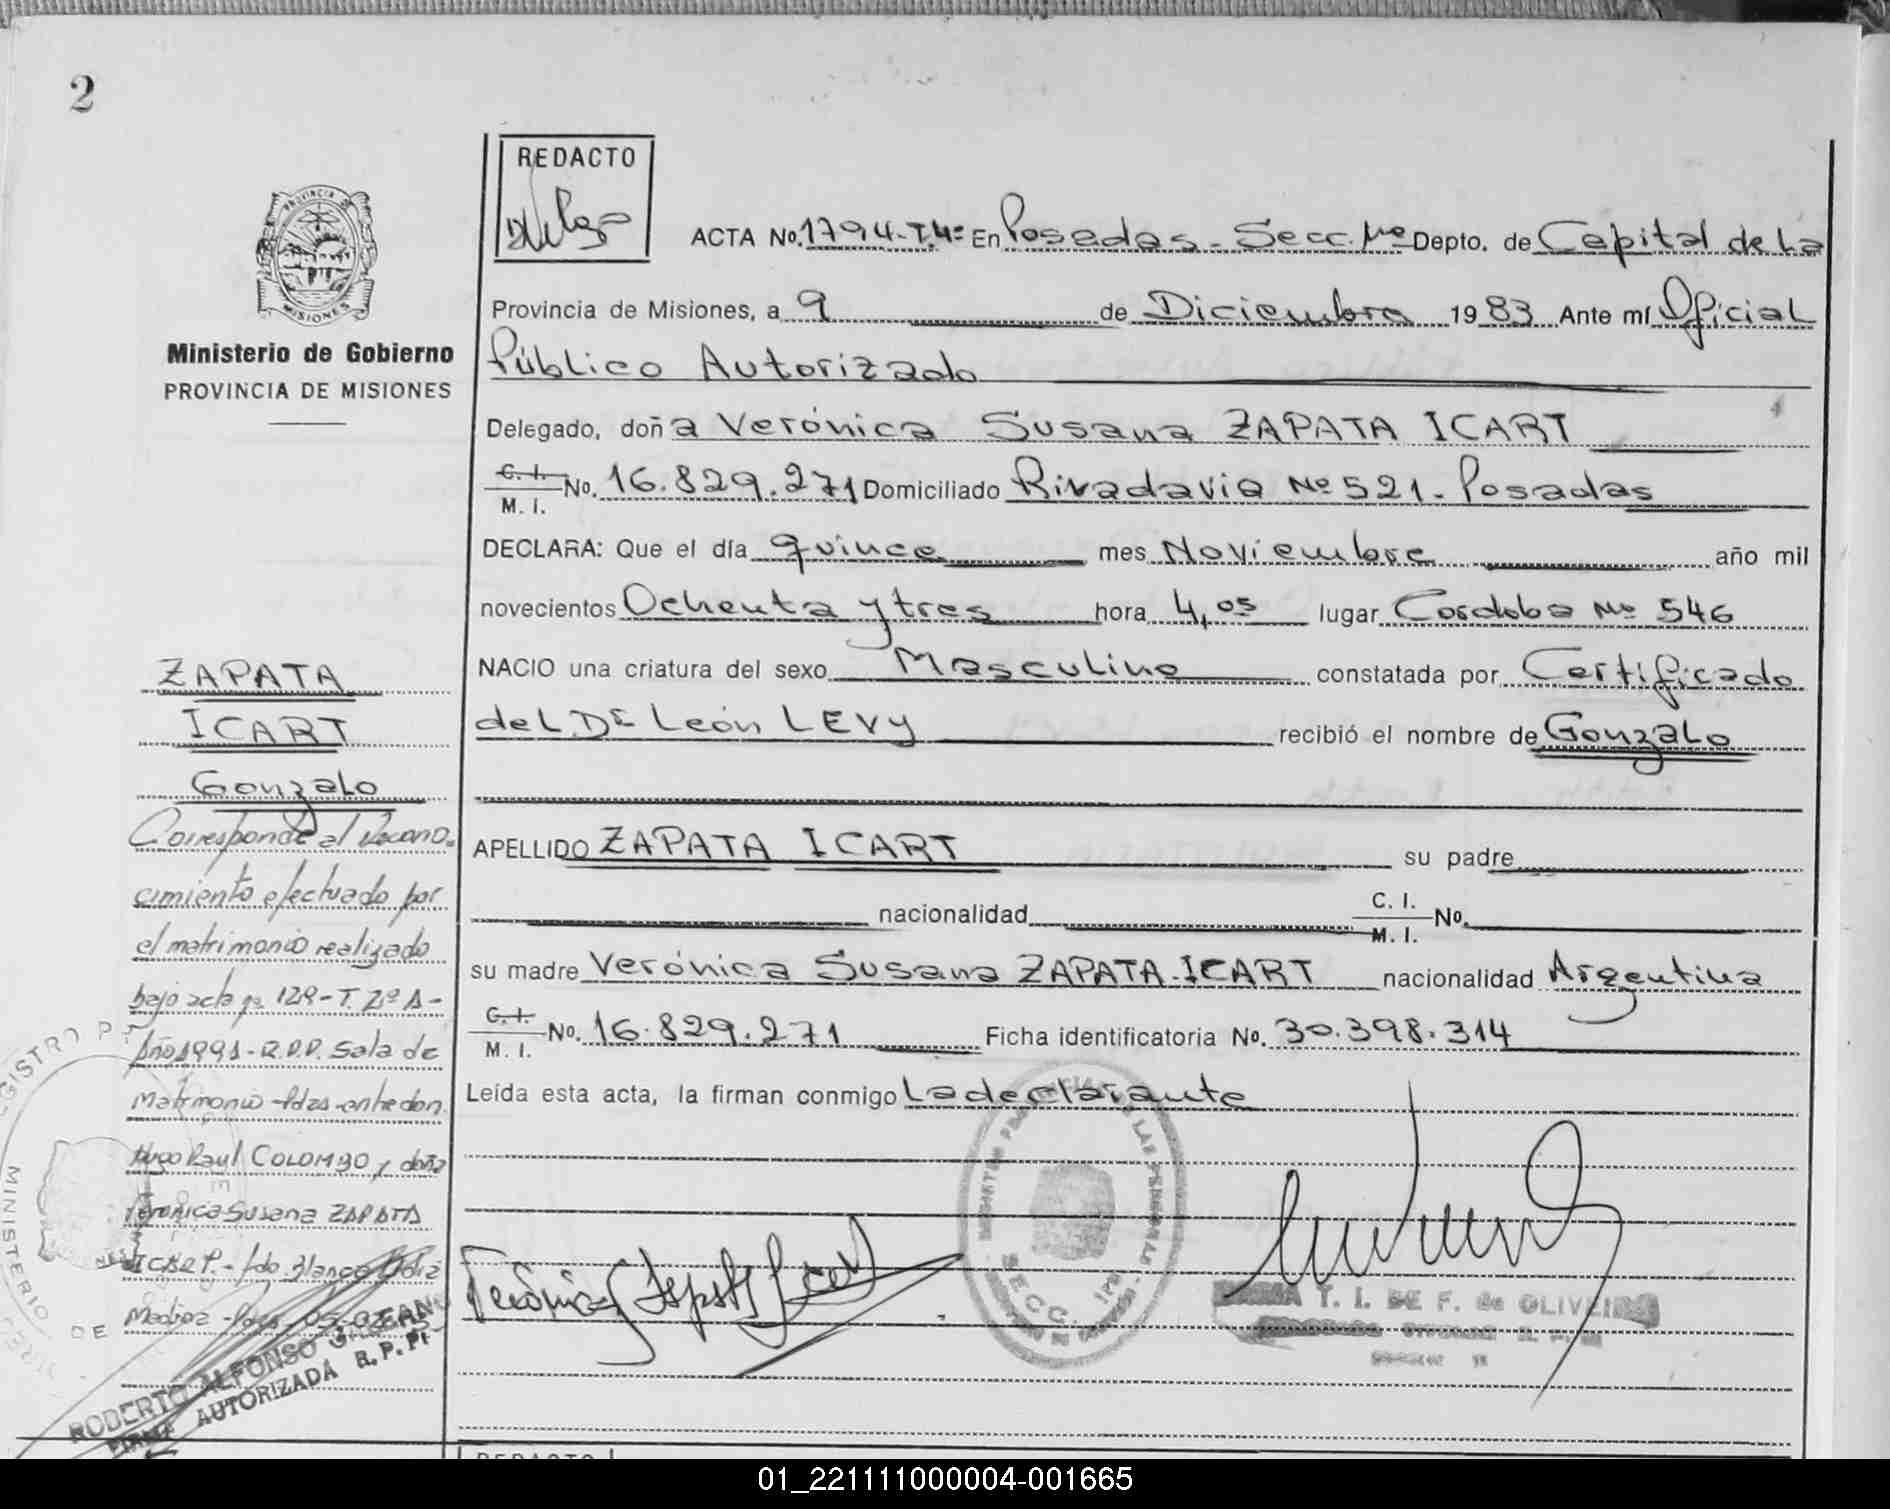 2
REDACTO
ACTA No. 1794-T.4º En Posadas - Secc. 1ra Depto. de Capital de la
Provincia de Misiones, a 9 de Diciembre 1983 Ante mí Oficial
Público Autorizado
Delegado, doña Verónica Susana ZAPATA ICART
C. I. M. I. No. 16.829.271 Domiciliado Rivadavia Nº 521 - Posadas
DECLARA: Que el día quince mes Noviembre año mil
novecientos Ochenta y tres hora 4,05 lugar Cordoba Nº 546
NACIO una criatura del sexo Masculino constatada por Certificado
del Dr León LEVY recibió el nombre de Gonzalo
APELLIDO ZAPATA ICART su padre
nacionalidad C. I. M. I. No.
su madre Verónica Susana ZAPATA-ICART nacionalidad Argentina
C. I. M. I. No. 16.829.271 Ficha identificatoria No. 30.398.314
Leída esta acta, la firman conmigo La declarante
Verónica S Zapata Icart
T. I. DE F. de OLIVEIRA
SECC. 1ra
PROVINCIA
MISIONES
Ministerio de Gobierno
PROVINCIA DE MISIONES
ZAPATA
ICART
Gonzalo
Corresponde al Recono-
cimiento efectuado por
el matrimonio realizado
bajo acta nº 129-T. 2º A-
Año 1991 - R.P.P. Sala de
Matrimonio - Pdas - ante don
Hugo Raul COLOMBO y doña
Veronica Susana ZAPATA
ICART. - fdo Blanca
Pdas
MINISTERIO DE
ROBERTO ALFONSO
FIRMA AUTORIZADA R.P.P.
REDACTO
01_221111000004-001665